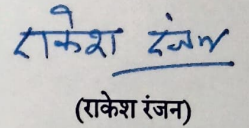 राकेश रंजन
(राकेश रंजन)